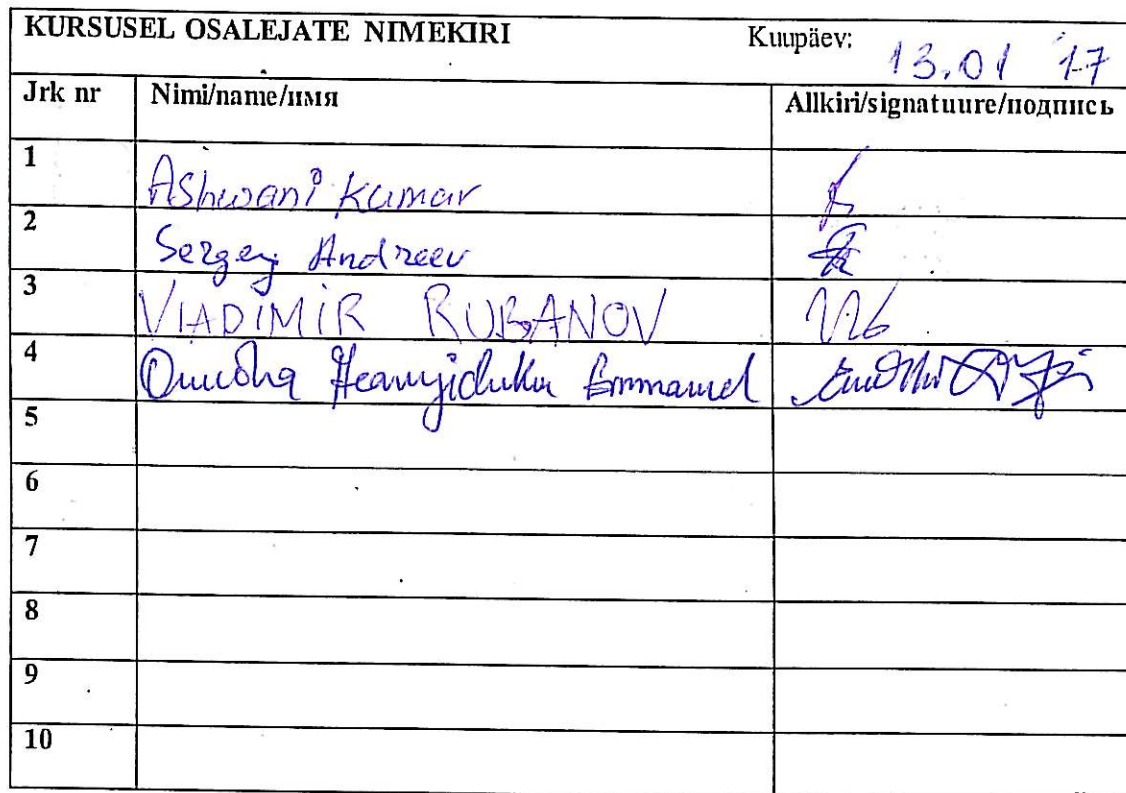 KURSUSEL OSALEJATE NIMEKIRI Kuupäev: 13.01 17
Jrk nr Nimi/name/имя Allkiri/signatuure/подпись
1 Ashwani Kumar
2 Sergey Andreev
3 VLADIMIR RUBANOV
4 Emmanuel
5
6
7
8
9
10